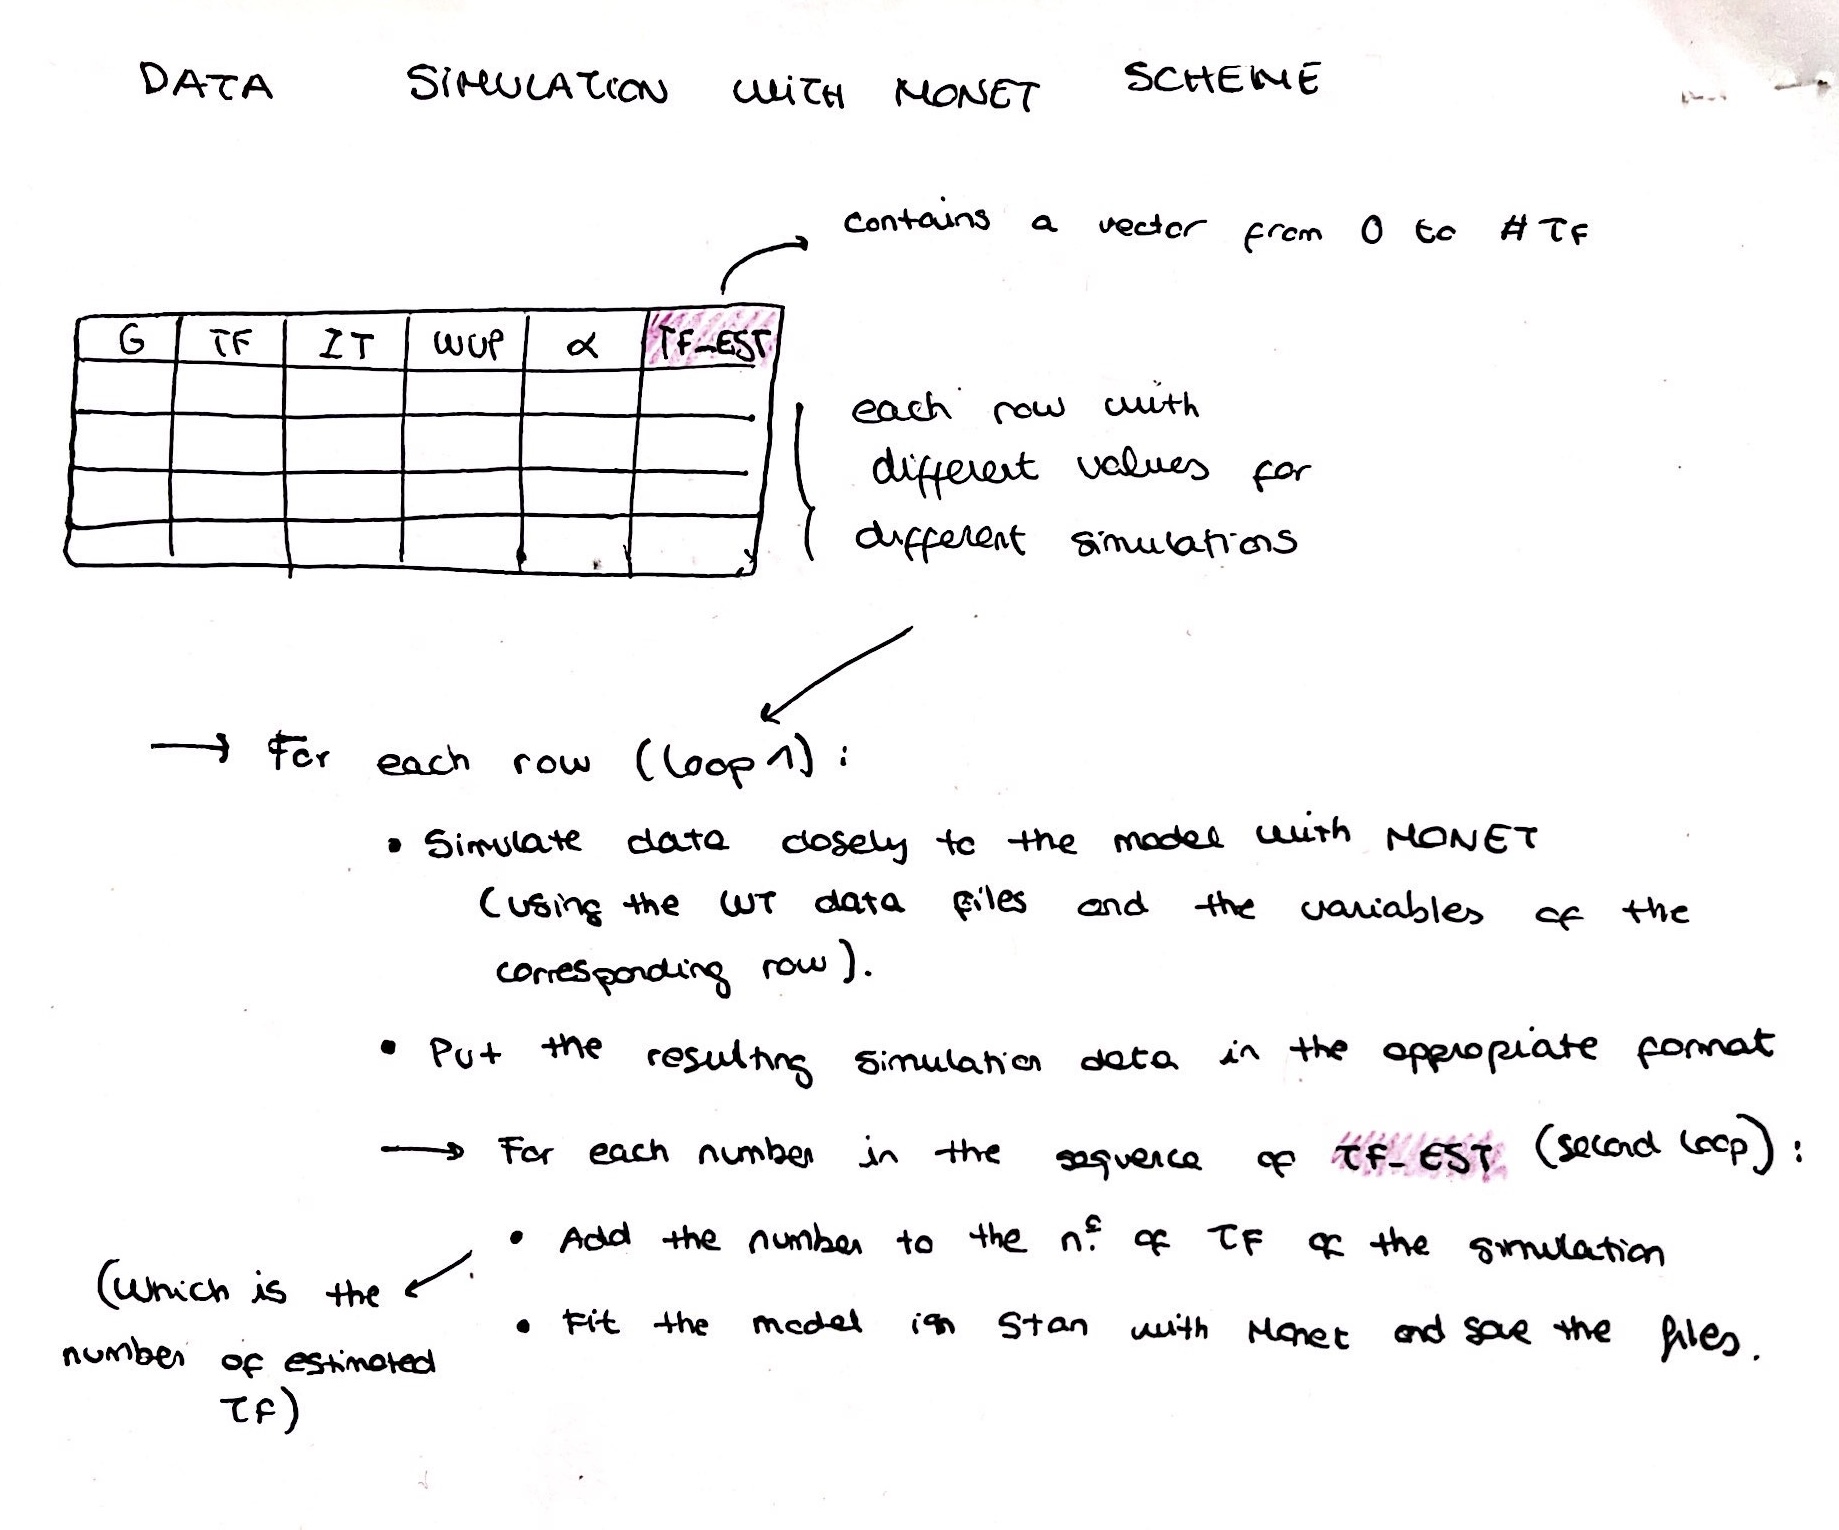 DATA SIMULATION WITH MONET SCHEME
contains a vector from 0 to # TF
G TF IT WUP α TF_EST
each row with
different values for
different simulations
→ For each row (loop 1) :
• Simulate data closely to the model with MONET
(using the WT data files and the variables of the
corresponding row).
• Put the resulting simulation data in the appropiate format
→ For each number in the sequence of TF_EST (second loop) :
• Add the number to the nº of TF of the simulation
(which is the
number of estimated
TF)
• Fit the model in Stan with Monet and save the files.